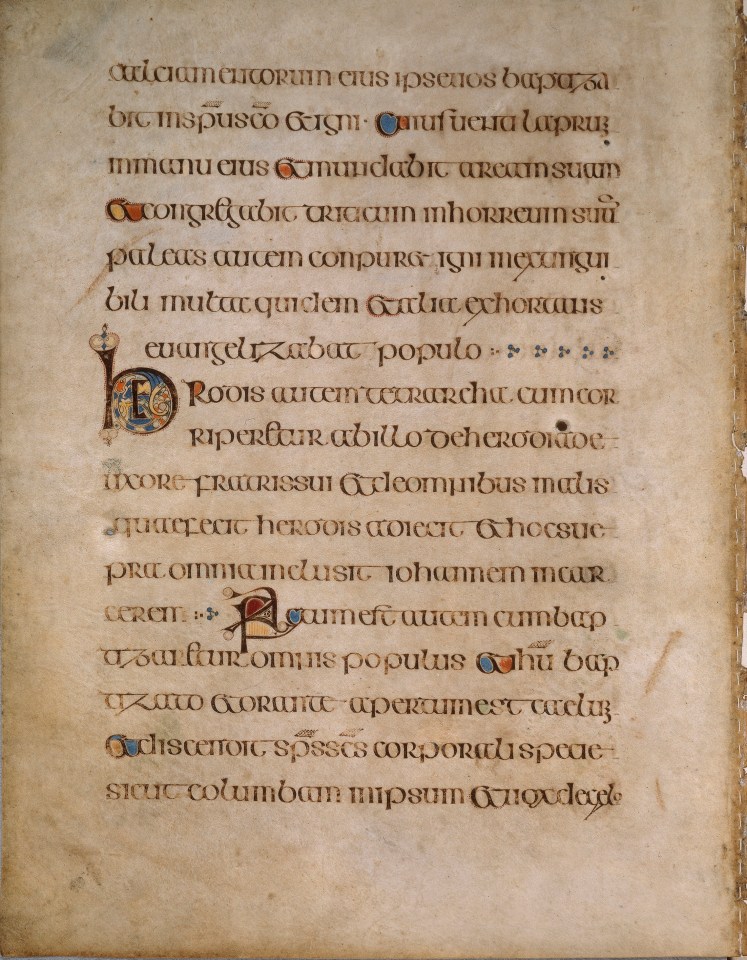 calciamentorum eius ipse uos baptiza
bit in spū scō & igni · Cuius uentilabrum
in manu eius & mundabit aream suam
& congregabit triticum in horreum suū
paleas autem conpur& igni inextingui
bili multa quidem & alia exhortans
euangelizabat populo
hERodis autem tetrarcha cum cor
riperetur ab illo de herodiade
uxore fratris sui & de omnibus malis
quae fecit herodis adiecit & hoc sue
pra omnia inclusit iohannem in car
cerem Factum est autem cum bap
tizaretur omnis populus & ihū bap
tizato & orante apertum est caelum
& discendit sp̄s sc̄s corporali specie
sicut columbam in ipsum & uox de celo